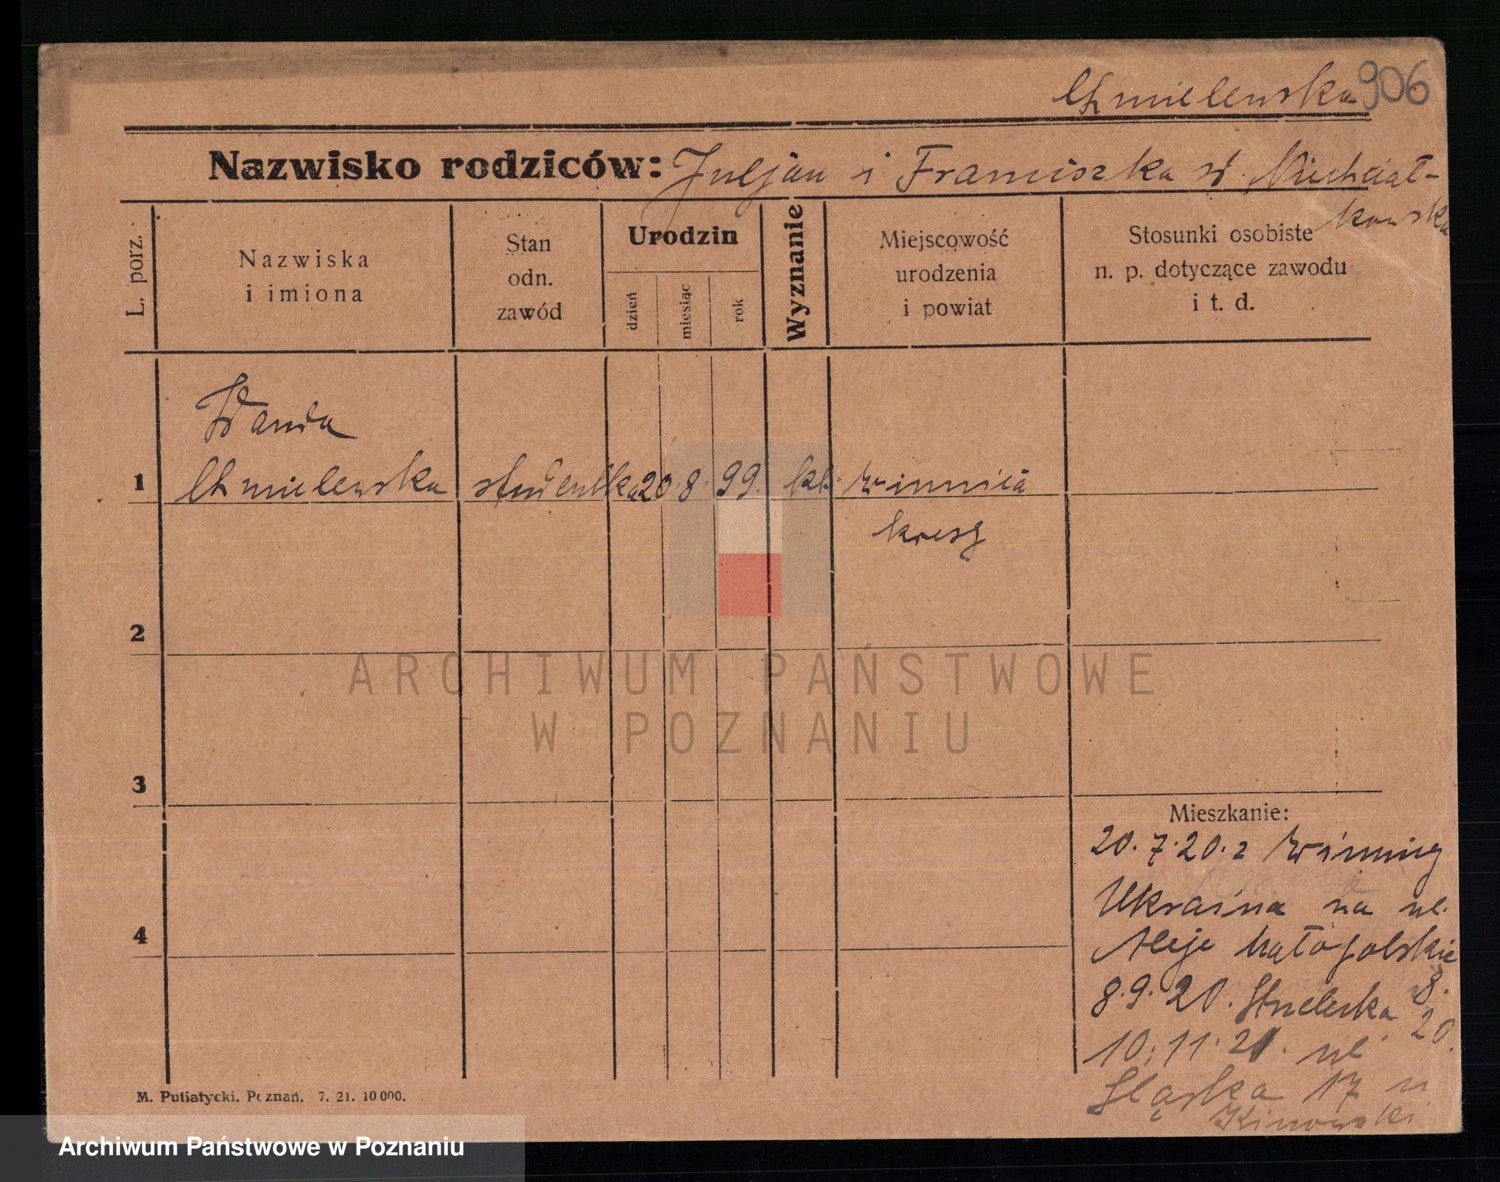 Chmielewska 906
Nazwisko rodziców: Juljan i Franciszka
kowska
L. porz.
Nazwiska
i imiona
Stan
odn.
zawód
Urodzin
dzień
miesiąc
rok
Wyznanie
Miejscowość
urodzenia
i powiat
Stosunki osobiste
n. p. dotyczące zawodu
i t. d.
Wanda
1 Chmielewska studentka 20 8. 99. kat. Winnica
kresy
2
3
4
Mieszkanie:
20.7.20. z Winnicy
Ukraina na ul.
Aleje Małopolskie
8.
8.9.20. Strzelecka 20.
10.11.21. ul.
Śląska 17 u
M. Putiatycki. Poznań. 7. 21. 10 000.
ARCHIWUM PAŃSTWOWE
W POZNANIU
Archiwum Państwowe w Poznaniu